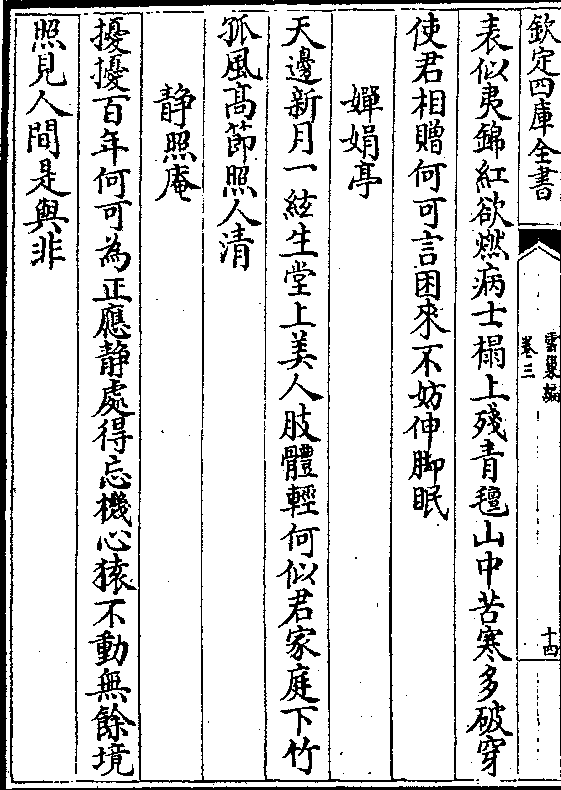 欽定四庫全書
雲巢編
卷三
十四
表似夷錦紅欲燃病士榻上殘青氊山中苦寒多破穿
使君相贈何可言困來不妨伸脚眠
嬋娟亭
天邊新月一絃生堂上美人肢體輕何似君家庭下竹
孤風髙節照人清
静照庵
擾擾百年何可為正應静處得忘機心猿不動無餘境
照見人間是與非